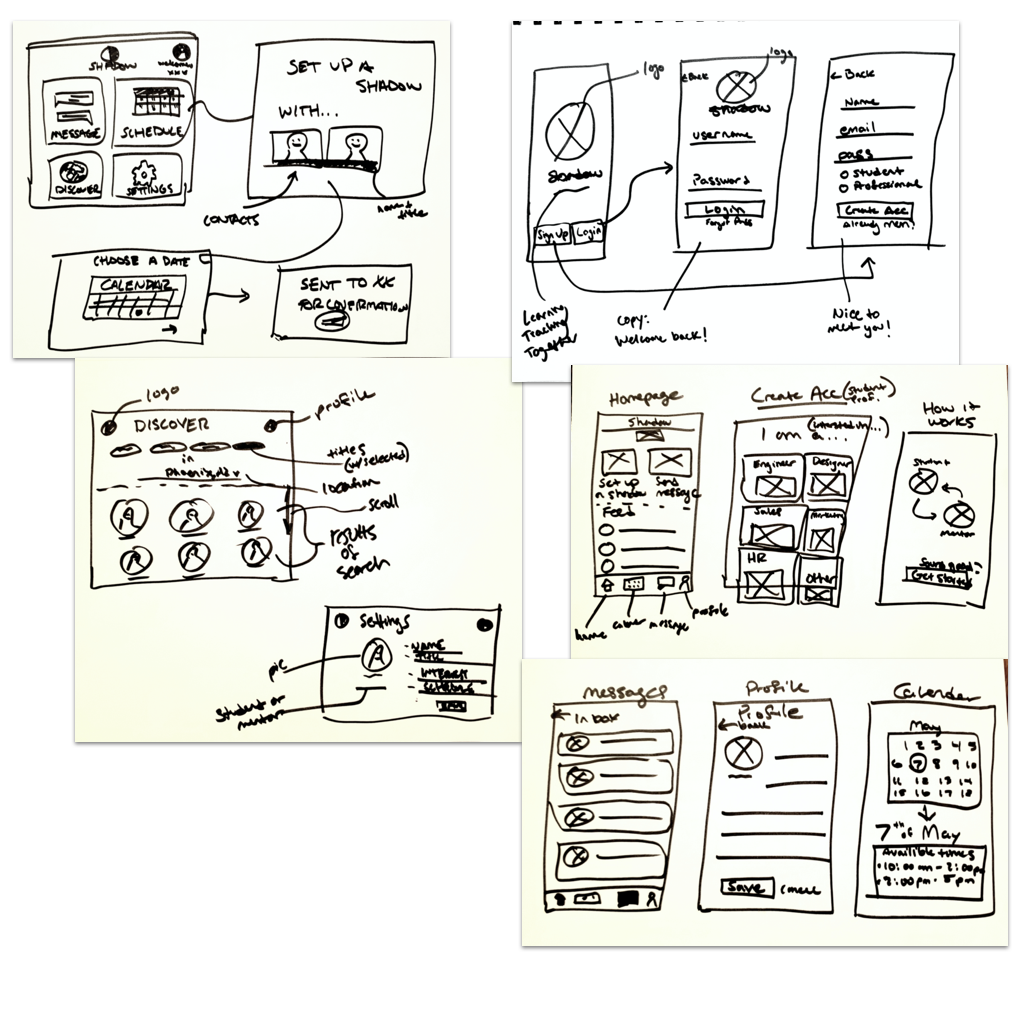 SHADOW
welcome
xxx
MESSAGE
SCHEDULE
DISCOVER
SETTINGS
SET UP A
SHADOW
WITH...
CONTACTS
name +
title
CHOOSE A DATE
CALENDAR
SENT TO XX
FOR COVERMATION
logo
Shadow
Sign Up
Login
Learning
Teaching
Together
Back
logo
SHADOW
username
Password
Login
Forgot Pass
Copy:
Welcome back!
Back
Name
email
pass
Student
Professional
Create Acc
Already mem?
Nice to
meet you!
logo
profile
DISCOVER
titles
(w/selected)
in
Phoenix,
location
scroll
results
of
search
Settings
NAME
TITLE
INTEREST
pic
Student or
mentor
Homepage
Shadow
Set up
a shadow
Send
message
Feed
home
message
profile
Create Acc (Student
Prof.)
(interested in...)
I am a...
Engineer
Designer
Sales
Marketing
HR
Other
How it
works
Student
Mentor
Sound good?
Get Started
Messages
Inbox
Profile
Profile
back
Save
Cancel
Calender
May
1 2 3 4 5
6 7 8 9 10
11 12 13 14
15 16 17 18
7th of May
Availible times
10:00 am - 2:00pm
5 pm